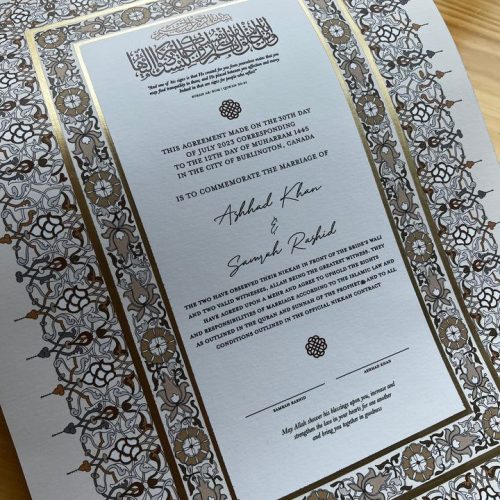 "And one of his signs is that He created for you from yourselves mates that you
may find tranquility in them; and He placed between you affection and mercy.
Indeed in that are signs for people who reflect"
SURAH AR-RUM | QUR'AN 30:21
THIS AGREEMENT MADE ON THE 30TH DAY
OF JULY 2023 CORRESPONDING
TO THE 12TH DAY OF MUHARRAM 1445
IN THE CITY OF BURLINGTON, CANADA
IS TO COMMEMORATE THE MARRIAGE OF
Ashhad Khan
&
Samrah Rashid
THE TWO HAVE OBSERVED THEIR NIKKAH IN FRONT OF THE BRIDE'S WALI
AND TWO VALID WITNESSES, ALLAH BEING THE GREATEST WITNESS. THEY
HAVE AGREED UPON A MEHR AND AGREE TO UPHOLD THE RIGHTS
AND RESPONSIBILITIES OF MARRIAGE ACCORDING TO THE ISLAMIC LAW AND
AS OUTLINED IN THE QURAN AND SUNNAH OF THE PROPHET ﷺ AND TO ALL
CONDITIONS OUTLINED IN THE OFFICIAL NIKKAH CONTRACT
SAMRAH RASHID
ASHHAD KHAN
May Allah shower his blessings upon you, increase and
strengthen the love in your hearts for one another
and bring you together in goodness